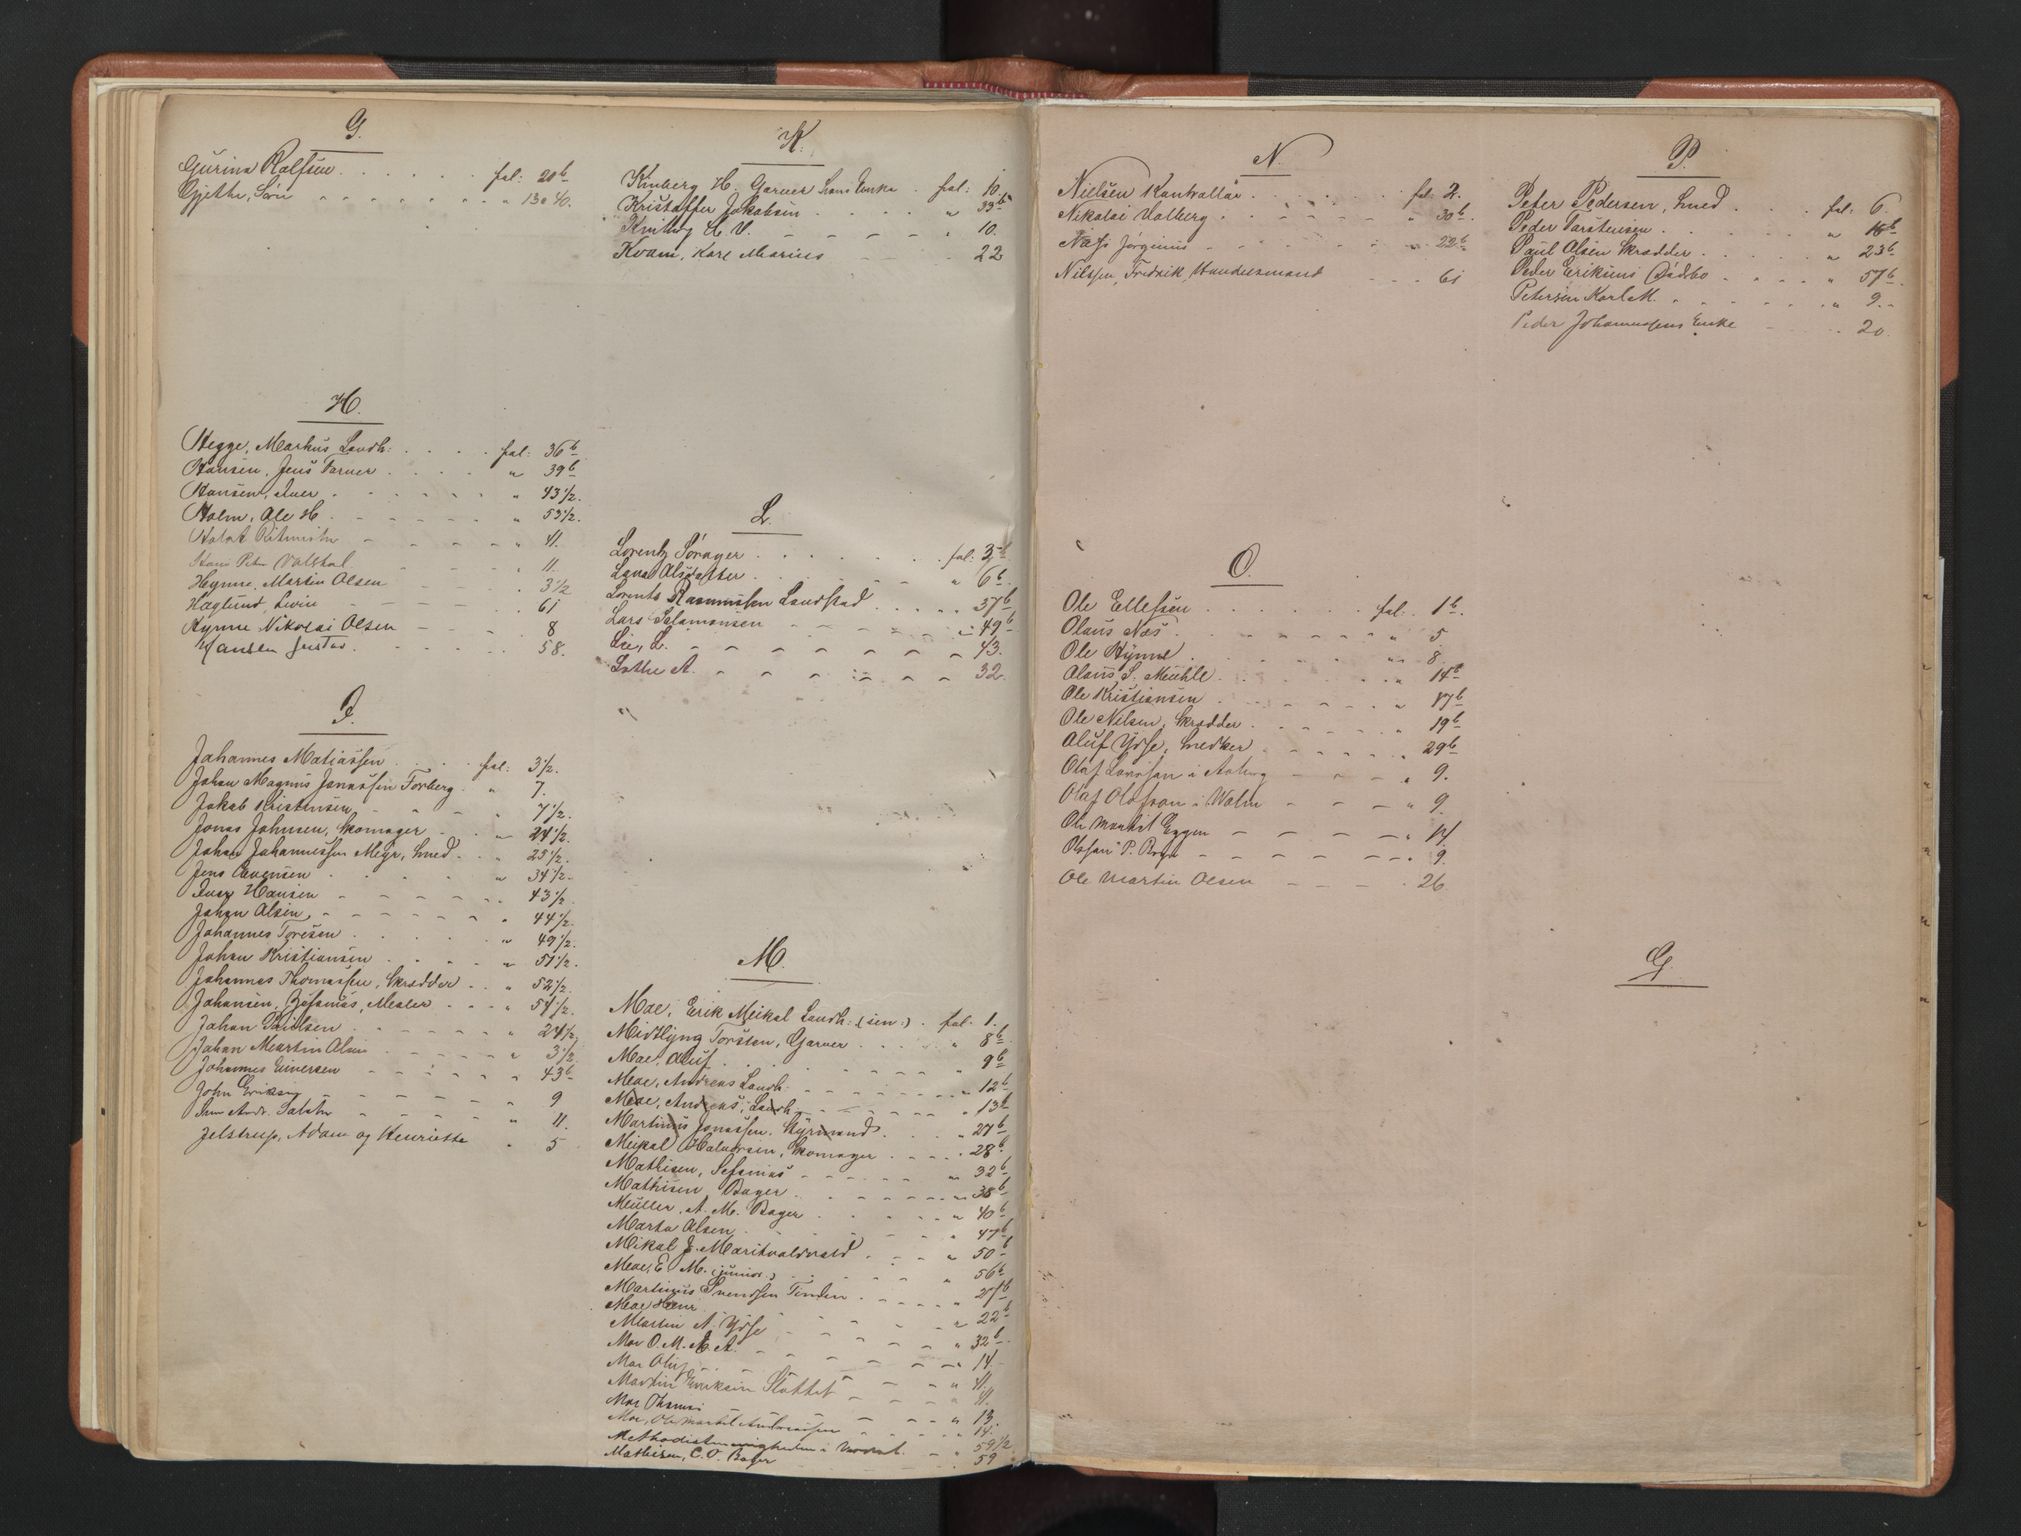 G.
Gurina Rolfsen . . . . . fol: 20b
Gjethe, Sören " 13 o 40.
H.
Hegge, Markus Landh: . . . . fol: 36b
Hansen, Jens Farver . . . . " 39b
Hansen, Iver . . . . " 43 1/2.
Holm, Ole H. " 53 1/2.
Holst Ritmister " 41.
Hans Peter 11.
Hynne, Martin Olsen 3 1/2
Haglund, Livin 61
Hynne Nikolai Olsen 8
Hansen Gustav. 58.
J.
Johannes Matiassen . . . . fol: 3 1/2.
Johan Magnus Jonassen Forberg . " 7.
Jakob Kristensen " 7 1/2.
Jonas Johnsen, Skomager " 24 1/2.
Johan Johannessen Meyr, Smed . " 25 1/2.
Jens Evensen " 34 1/2.
Iver Hansen " 43 1/2.
Johan Olsen " 44 1/2.
Johannes Toresen " 49 1/2.
Johan Kristiansen " 51 1/2.
Johannes Thomassen, Skrædder . " 52 1/2.
Johansen, Zefanias, Mester . . " 54 1/2.
Johan Paulsen " 24 1/2
Johan Martin Olsen " 3 1/2.
Johannes Einersen " 43b
John Eriksen " 9
Andr. " 11.
Jelstrup, Adam og Henriette " 5
K.
Kinberg H. Garver Enke . fol: 10
Kristoffer Jakobsen . . . . " 33b
Kinberg H. V. " 10.
Kvam, Karl Marius 22
L.
Lorentz Sörager . . . . fol: 5b
Lana Olsdatter " 6b.
Lorents Rasmussen Landstad . . . " 37b
Lars Salamonsen " 49b
Lie, L. 43.
Lothe A. 32.
M.
Moe, Erik Meikal Landh: (sen:) . fol: 1.
Midtlyng Torsten, Garver " 8b.
Moe, Oluf " 9b
Moe, Andreas Landh. " 12b
Moe, Andreas, Landh " 13b
Martinus Jonassen. Styrmand . . . " 27b
Meikal Halvorsen, Skomager . . . . 28b
Mathisen, Sefanias " 32b
Mathisen, Bager " 38b
Müller, A. M. Bager " 40b
Marta Olsen . . . . " 47b
Mikal J. Maritvoldvald " 50b
Moe, E. M. (junior.) " 56b
Martinus Svendsen Tinden " 27b
Moe Henr " 22b
Martin A. Ydse " 32b
Moe O. M. A. " 14.
Moe Oluf " 41.
Martin Eriksen Slottet " 41.
Moe Thomas " 13.
Moe, Ole Martel Andreassen " 14.
Methodistmenigheden i 59 1/2
Mathisen, C. O. Bager 59
N.
Nielsen Kontrollör . . . . fol: 2.
Nikolai Volberg " 30b
Næss Jörginus " 22b
Nilssen, Fredrik, Handelsmand 61
O.
Ole Ellefsen . . . . . fol: 1b.
Olaus Næs " 5
Ole Hynne " 8
Olaus S. Meühle " 14b
Ole Kristiansen " 17b
Ole Nilsen, Skrædder " 19b
Oluf Ydse, Snedker " 29b
Olaf Larssen i Aaberg " 9.
Olaf Olafson i Walm " 9.
Ole Martel Eggen " 14
P. " 9.
Ole Martin Olsen . 26.
P.
Peter Pedersen, Smed . . . fol: 6.
Peder Torstensen " 18b
Paul Olsen Skrædder " 23b
Peder Eriksens Dödsbo " 57b
Petersen Karl M. " 9.
Peder Johannesens Enke 20.
G.